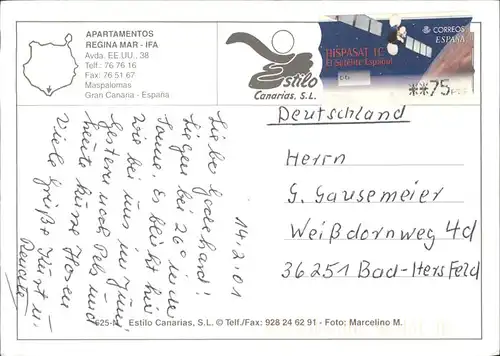 APARTAMENTOS
REGINA MAR - IFA
Avda. EE.UU., 38
Telf.: 76 76 16
Fax: 76 51 67
Maspalomas
Gran Canaria - España
Estilo
Canarias, S.L.
HISPASAT 1C
El Satélite Español
CORREOS
ESPAÑA
**75 PTS
14.2.01
Liebe Godehard!
Liegen bei 26° in der
Sonne. Es blüht hier
wie bei uns im Juni
Gestern noch Pelz und
heute kurze Hosen
Viele Grüße Kurt u.
Renate
Deutschland
Herrn
G. Gausemeier
Weißdornweg 4d
36251 Bad-Hersfeld
Estilo Canarias, S.L. © Telf./Fax: 928 24 62 91 - Foto: Marcelino M.